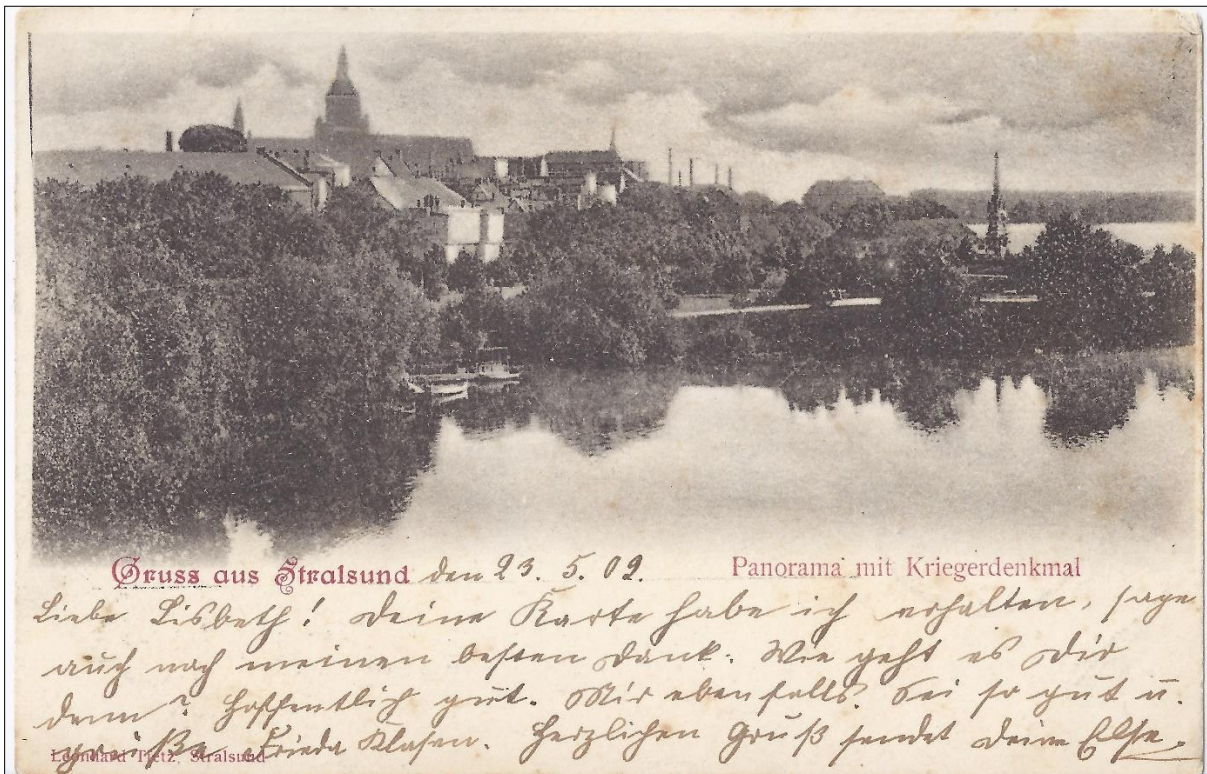 Gruss aus Stralsund den 23. 5. 02. Panorama mit Kriegerdenkmal
Liebe Lisbeth! Deine Karte habe ich erhalten, sage
auch noch meinen besten Dank. Wie geht es Dir
denn? Hoffentlich gut. Mir ebenfalls. Sei so gut u.
grüße Frieda Klasen. Herzlichen Gruß sendet Deine Else.
Leonhard Tietz, Stralsund